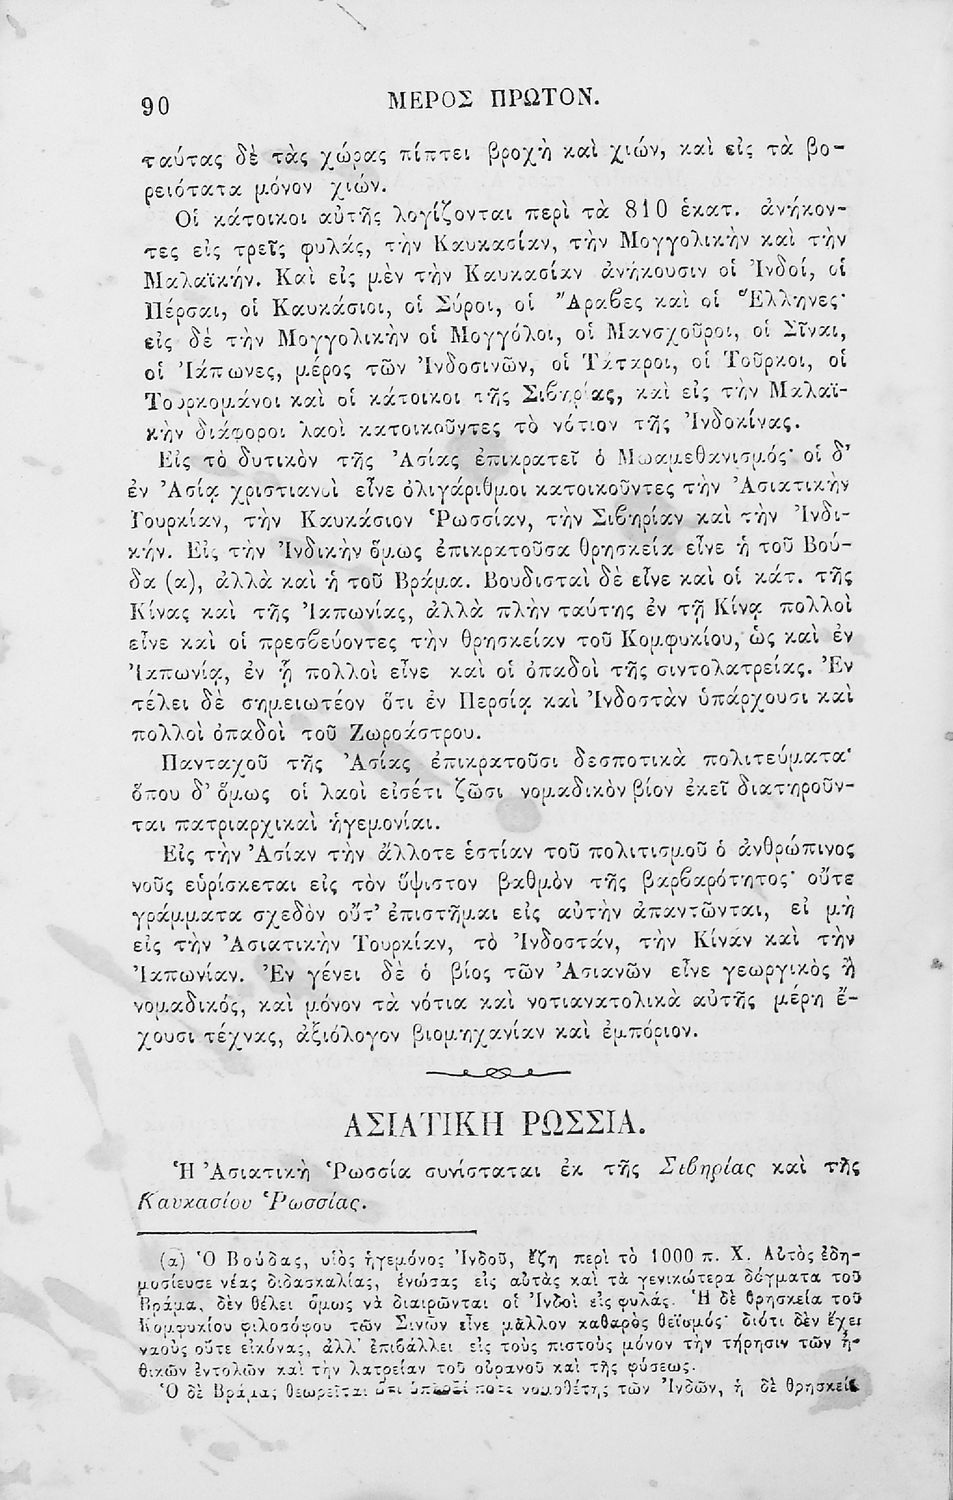 90
ΜΕΡΟΣ ΠΡΩΤΟΝ.
ταύτας δὲ τὰς χώρας πίπτει βροχὴ καὶ χιών, καὶ εἰς τὰ βο-
ρειότατα μόνον χιών.
Οἱ κάτοικοι αὐτῆς λογίζονται περὶ τὰ 810 ἑκατ. ἀνήκον-
τες εἰς τρεῖς φυλάς, τὴν Καυκασίαν, τὴν Μογγολικὴν καὶ τὴν
Μαλαϊκήν. Καὶ εἰς μὲν τὴν Καυκασίαν ἀνήκουσιν οἱ Ἰνδοί, οἱ
Πέρσαι, οἱ Καυκάσιοι, οἱ Σύροι, οἱ Ἄραβες καὶ οἱ Ἕλληνες·
εἰς δὲ τὴν Μογγολικὴν οἱ Μογγόλοι, οἱ Μανσχοῦροι, οἱ Σῖναι,
οἱ Ἰάπωνες, μέρος τῶν Ἰνδοσινῶν, οἱ Τάταροι, οἱ Τοῦρκοι, οἱ
Τουρκομάνοι καὶ οἱ κάτοικοι τῆς Σιβηρίας, καὶ εἰς τὴν Μαλαϊ-
κὴν διάφοροι λαοὶ κατοικοῦντες τὸ νότιον τῆς Ἰνδοκίνας.
Εἰς τὸ δυτικὸν τῆς Ἀσίας ἐπικρατεῖ ὁ Μωαμεθανισμός· οἱ δ'
ἐν Ἀσίᾳ χριστιανοὶ εἶνε ὀλιγάριθμοι κατοικοῦντες τὴν Ἀσιατικὴν
Τουρκίαν, τὴν Καυκάσιον Ῥωσσίαν, τὴν Σιβηρίαν καὶ τὴν Ἰνδι-
κήν. Εἰς τὴν Ἰνδικὴν ὅμως ἐπικρατοῦσα θρησκεία εἶνε ἡ τοῦ Βού-
δα (α), ἀλλὰ καὶ ἡ τοῦ Βράμα. Βουδισταὶ δὲ εἶνε καὶ οἱ κάτ. τῆς
Κίνας καὶ τῆς Ἰαπωνίας, ἀλλὰ πλὴν ταύτης ἐν τῇ Κίνᾳ πολλοὶ
εἶνε καὶ οἱ πρεσβεύοντες τὴν θρησκείαν τοῦ Κομφυκίου, ὡς καὶ ἐν
Ἰαπωνίᾳ, ἐν ᾗ πολλοὶ εἶνε καὶ οἱ ὀπαδοὶ τῆς σιντολατρείας. Ἐν
τέλει δὲ σημειωτέον ὅτι ἐν Περσίᾳ καὶ Ἰνδοστὰν ὑπάρχουσι καὶ
πολλοὶ ὀπαδοὶ τοῦ Ζωροάστρου.
Πανταχοῦ τῆς Ἀσίας ἐπικρατοῦσι δεσποτικὰ πολιτεύματα·
ὅπου δ' ὅμως οἱ λαοὶ εἰσέτι ζῶσι νομαδικὸν βίον ἐκεῖ διατηροῦν-
ται πατριαρχικαὶ ἡγεμονίαι.
Εἰς τὴν Ἀσίαν τὴν ἄλλοτε ἑστίαν τοῦ πολιτισμοῦ ὁ ἀνθρώπινος
νοῦς εὑρίσκεται εἰς τὸν ὕψιστον βαθμὸν τῆς βαρβαρότητος· οὔτε
γράμματα σχεδὸν οὔτ' ἐπιστῆμαι εἰς αὐτὴν ἀπαντῶνται, εἰ μὴ
εἰς τὴν Ἀσιατικὴν Τουρκίαν, τὸ Ἰνδοστάν, τὴν Κίναν καὶ τὴν
Ἰαπωνίαν. Ἐν γένει δὲ ὁ βίος τῶν Ἀσιανῶν εἶνε γεωργικὸς ἢ
νομαδικός, καὶ μόνον τὰ νότια καὶ νοτιανατολικὰ αὐτῆς μέρη ἔ-
χουσι τέχνας, ἀξιόλογον βιομηχανίαν καὶ ἐμπόριον.
ΑΣΙΑΤΙΚΗ ΡΩΣΣΙΑ.
Ἡ Ἀσιατικὴ Ῥωσσία συνίσταται ἐκ τῆς Σιβηρίας καὶ τῆς
Καυκασίου Ῥωσσίας.
(α) Ὁ Βούδας, υἱὸς ἡγεμόνος Ἰνδοῦ, ἔζη περὶ τὸ 1000 π. Χ. Αὐτὸς ἐδη-
μοσίευσε νέας διδασκαλίας, ἑνώσας εἰς αὐτὰς καὶ τὰ γενικώτερα δόγματα τοῦ
Βράμα, δὲν θέλει ὅμως νὰ διαιρῶνται οἱ Ἰνδοὶ εἰς φυλάς. Ἡ δὲ θρησκεία τοῦ
Κομφυκίου φιλοσόφου τῶν Σινῶν εἶνε μᾶλλον καθαρὸς θεϊσμός· διότι δὲν ἔχει
ναοὺς οὔτε εἰκόνας, ἀλλ' ἐπιβάλλει εἰς τοὺς πιστοὺς μόνον τὴν τήρησιν τῶν ἠ-
θικῶν ἐντολῶν καὶ τὴν λατρείαν τοῦ οὐρανοῦ καὶ τῆς φύσεως.
Ὁ δὲ Βράμας θεωρεῖται ὅτι ὑπῆρξέ ποτε νομοθέτης τῶν Ἰνδῶν, ἡ δὲ θρησκεία